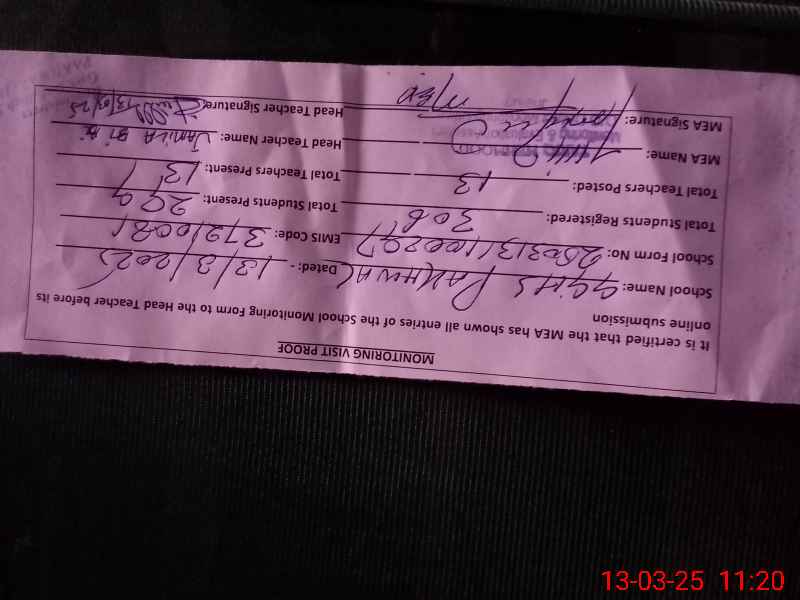 MONITORING VISIT PROOF
It is certified that the MEA has shown all entries of the School Monitoring Form to the Head Teacher before its
online submission
School Name: GGHS Dated: - 13/3/2025
School Form No: EMIS Code: 37210081
Total Students Registered: 306 Total Students Present: 299
Total Teachers Posted: 13 Total Teachers Present: 13
MEA Name: Head Teacher Name: Jamila Bibi
MEA Signature: Head Teacher Signature: 13/03/25
13-03-25 11:20